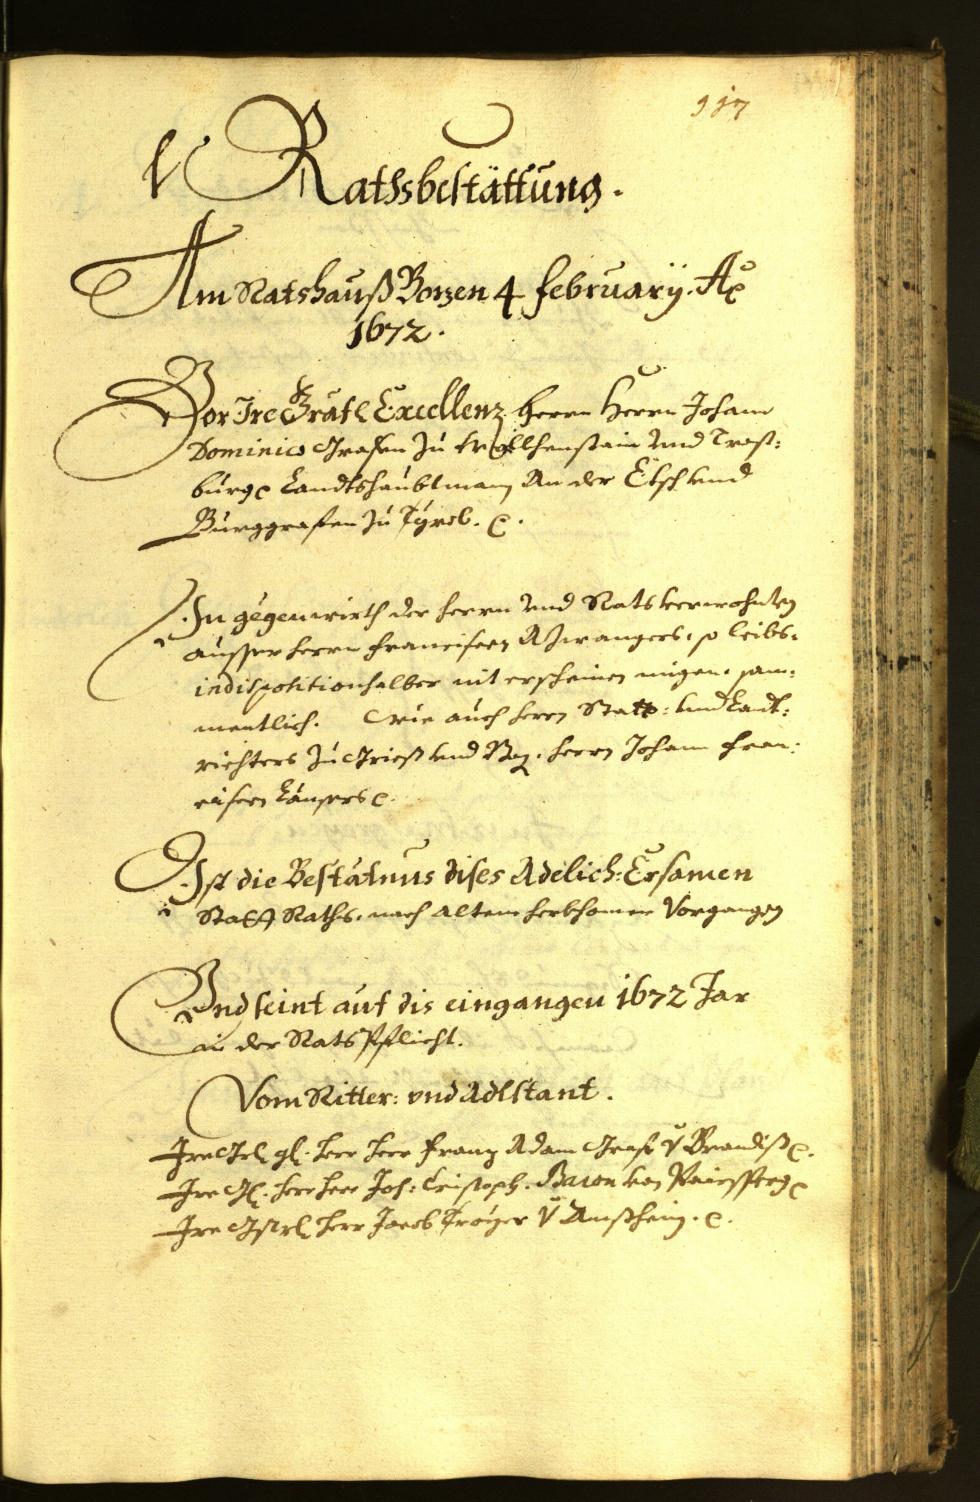 117
Rathsbestättung.
Am Ratshauß Bozen 4 February. Aõ
1672.
Vor Ire Gräfl Excellenz Herrn Herrn Johann
Dominico Grafen zu Wolkhenstain und Trost:
burg Landtshaubtman An der Etsch und
Burggrafen zu Tÿrol. etc.
In gegenwirth der Herrn und Rats verwohnten
ausser Herrn Franciscen Azwangers, so leibs:
indisposition halber nit erscheinen mügen, sam:
mentlich. Wie auch Herrn Statt: und Landt:
richters zu Grieß und Boz. Herrn Johann Fran:
cisen
Ist die Bestätnus dises Adelich: Ersamen
Statt Raths, nach altem Herkhomen Vorgangen
Und seint auf dis eingangen 1672 Jar
in der Rats Pflicht.
Vom Ritter: und Adlstant.
Ire Herr Herr Franz Adam Graf v Brandiß etc.
Ire Herr Herr Joh: Cristoph. Baron von
Ire Herr Jacob Troyer v